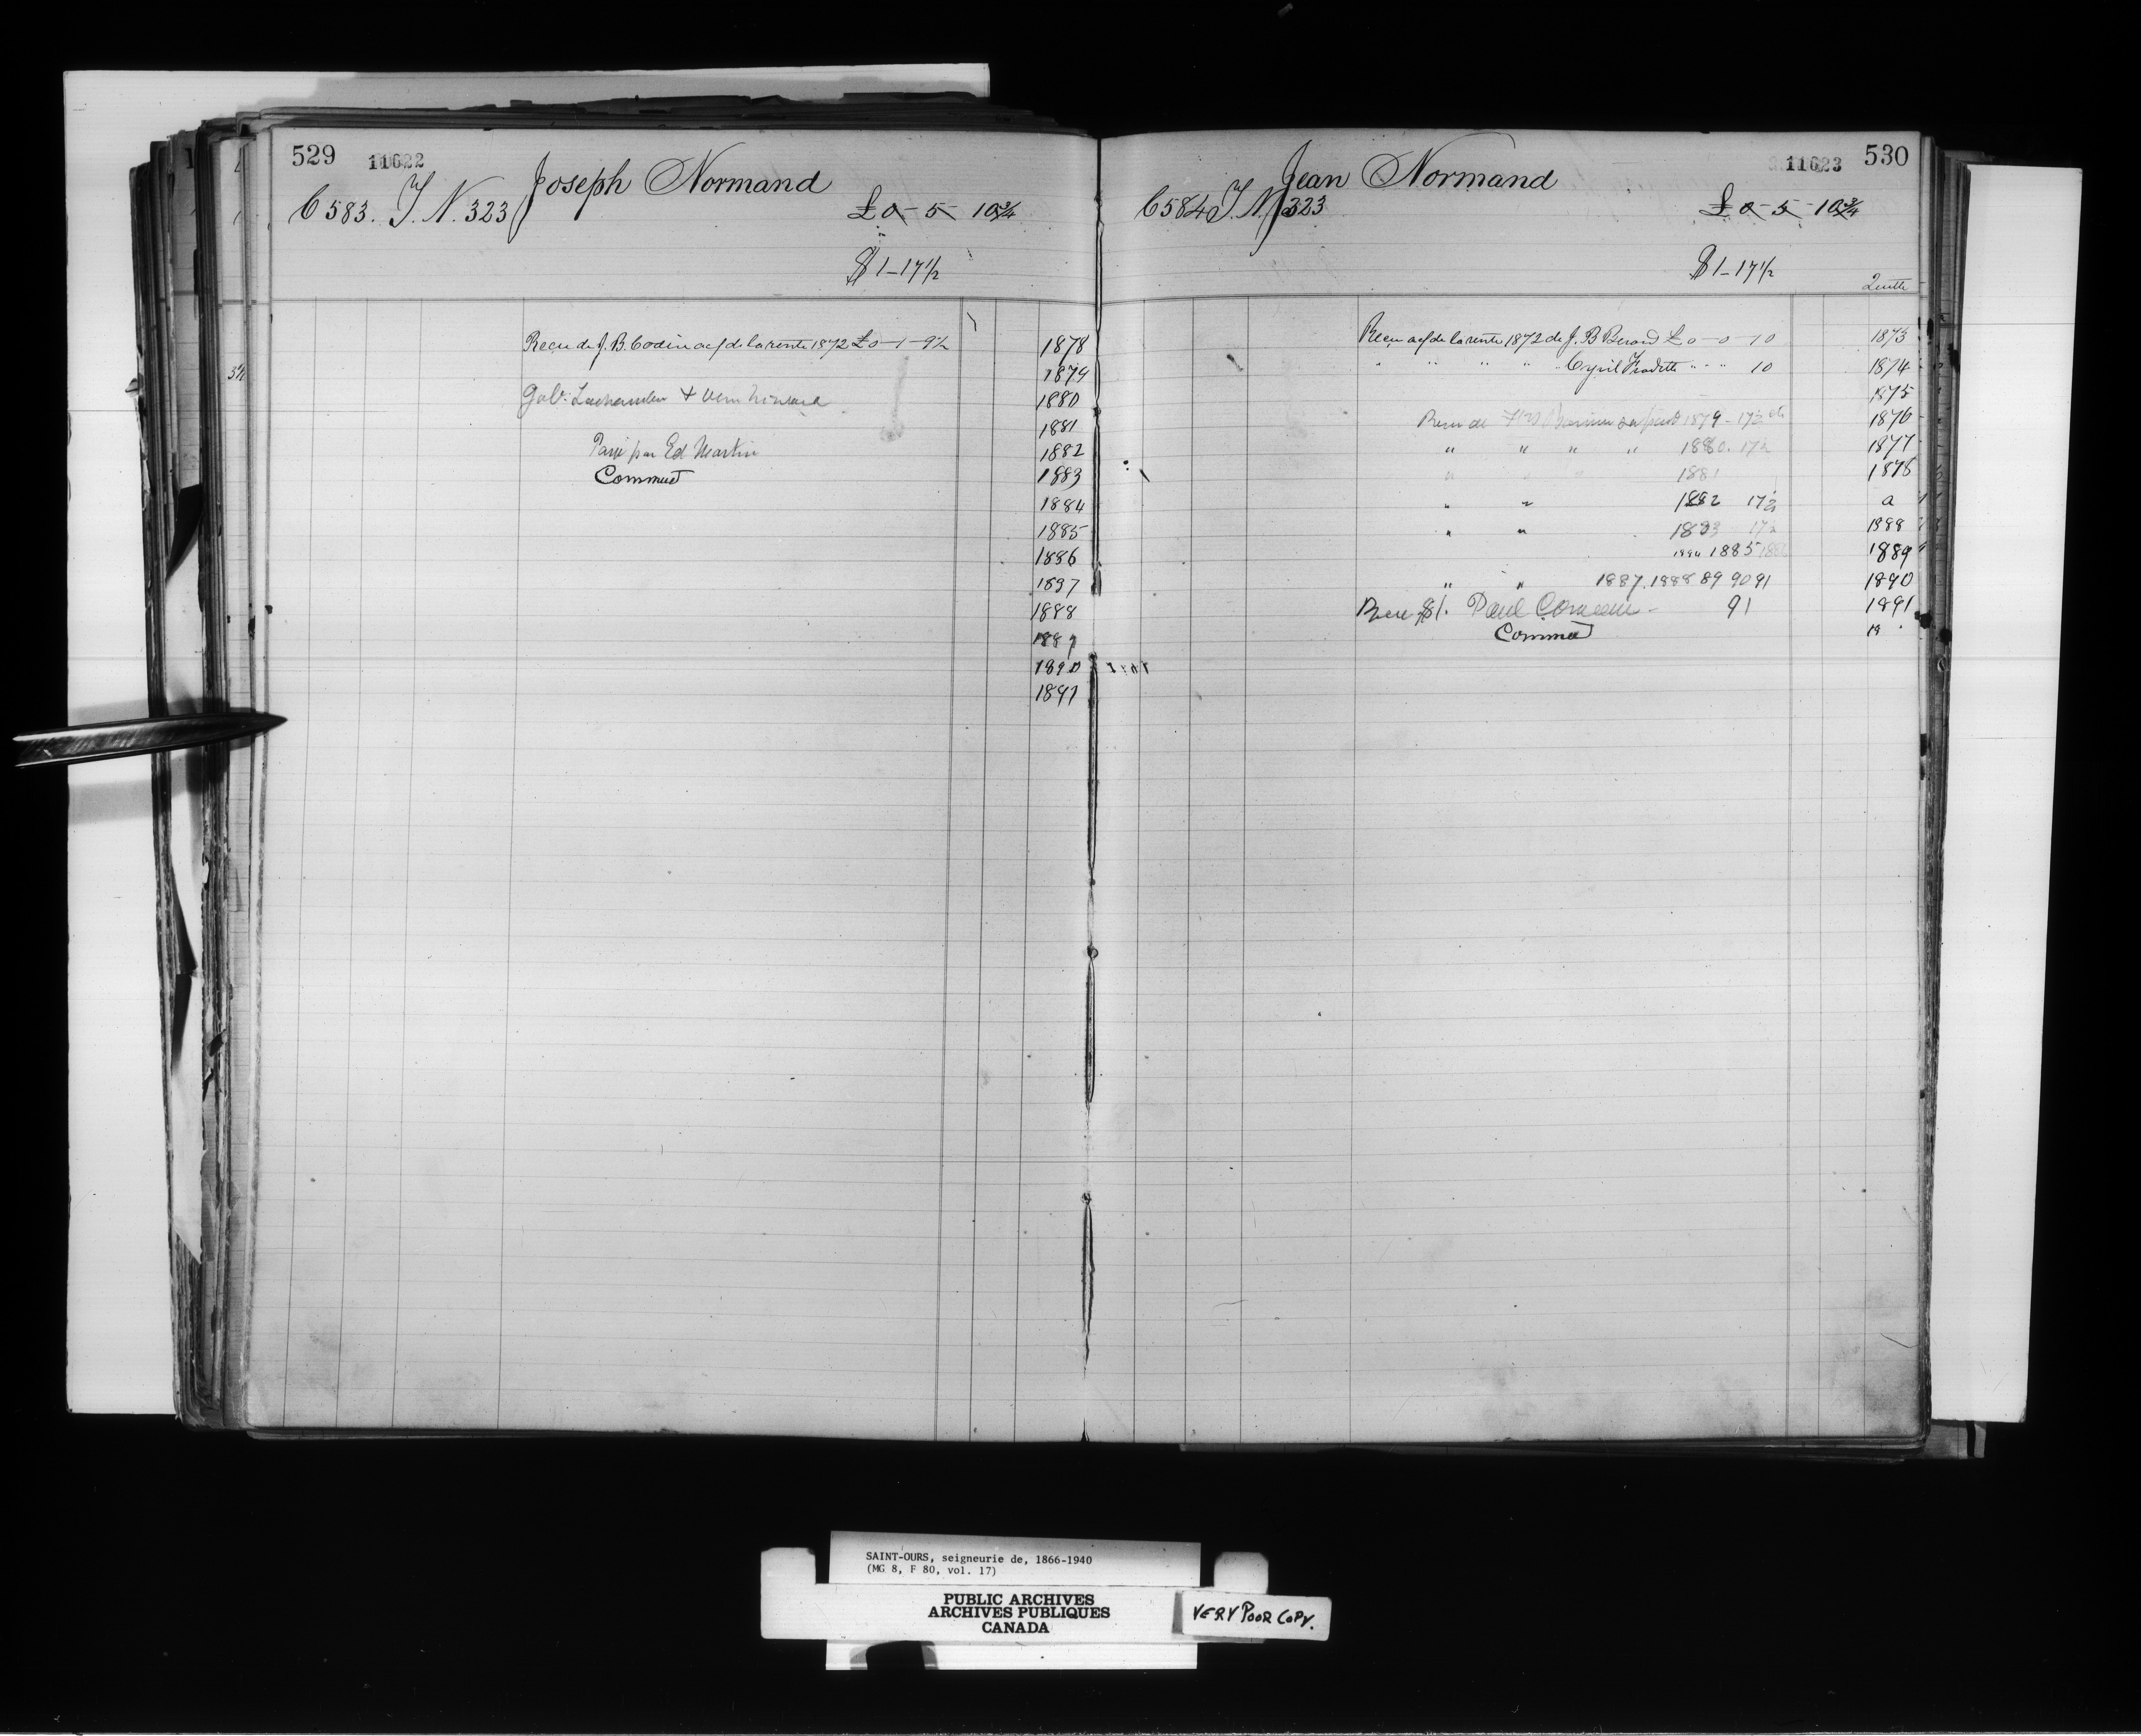 529 11622 Joseph Normand
C 583. T. N. 323 £0-5-10¾
$1-17½
Recu de J. B. Codin acf de la rente 1872 £0-1-9½ 1878
1879
1880
1881
Payé par Ed Martin 1882
Commué 1883
1884
1885
1886
1887
1888
1889
1890
1891
Jean Normand 11623 530
C 584 T. N. 323 £0-5-10¾
$1-17½
Recu acf de la rente 1872 de J. B. Berard £0-0-10 1873
" " " " Cyril Fradette " " 10 1874
1875
Recu de 1879 - 17½ 1876
" " " " 1880. 17½ 1877
1881 1878
" " 1882 17½ a
" " 1883 17½ 1888
1884 1885 1889
" " 1887. 1888 89 90 91 1890
Recu $1. Paul 91 1891
Commué 19
SAINT-OURS, seigneurie de, 1866-1940
(MG 8, F 80, vol. 17)
PUBLIC ARCHIVES
ARCHIVES PUBLIQUES
CANADA
VERY POOR COPY.